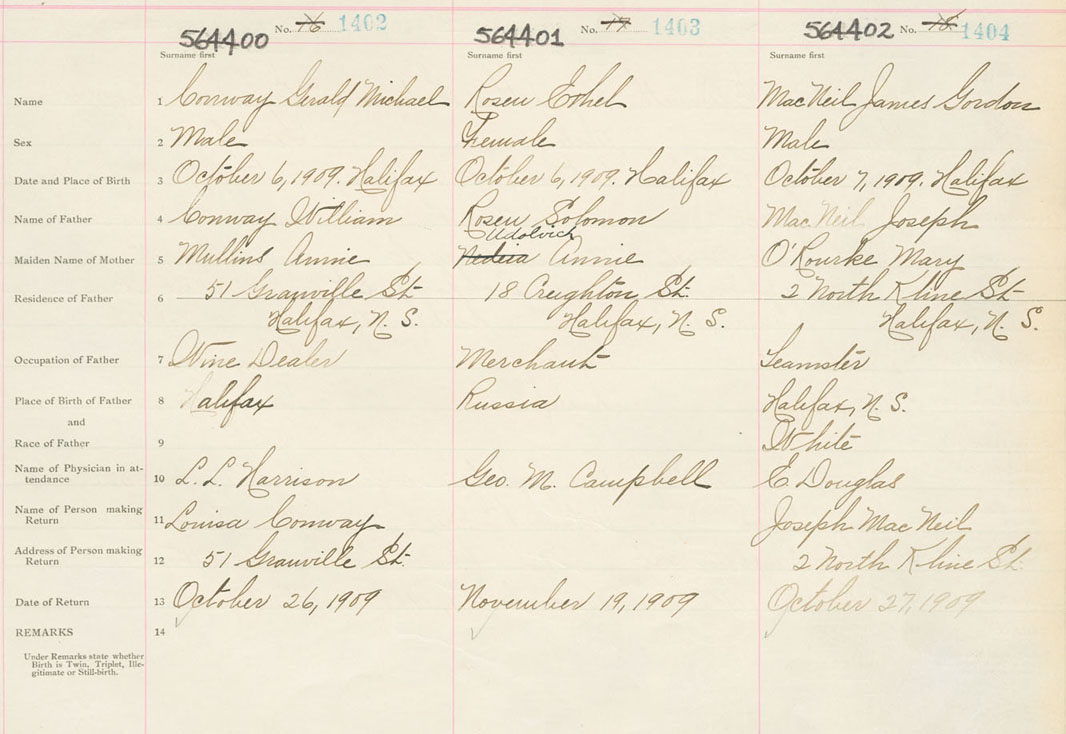 564400 No. 76 1402 564401 No. 77 1403 564402 No. 78 1404
Surname first Surname first Surname first
Name 1 Conway Gerald Michael Rosen Ethel MacNeil James Gordon
Sex 2 Male Female Male
Date and Place of Birth 3 October 6, 1909. Halifax October 6, 1909. Halifax October 7, 1909. Halifax
Name of Father 4 Conway William Rosen Solomon MacNeil Joseph
Udolvich
Maiden Name of Mother 5 Mullins Annie Annie O'Rourke Mary
Residence of Father 6 51 Granville St. 18 Creighton St. 2 North Kline St
Halifax, N. S. Halifax, N. S. Halifax, N. S.
Occupation of Father 7 Wine Dealer Merchant Teamster
Place of Birth of Father 8 Halifax Russia Halifax, N. S.
and
Race of Father 9 White
Name of Physician in at-
tendance 10 L. L. Harrison Geo. M. Campbell E Douglas
Name of Person making
Return 11 Louisa Conway Joseph MacNeil
Address of Person making
Return 12 51 Granville St. 2 North Kline St.
Date of Return 13 October 26, 1909 November 19, 1909 October 27, 1909
REMARKS 14
Under Remarks state whether
Birth is Twin, Triplet, Ille-
gitimate or Still-birth.